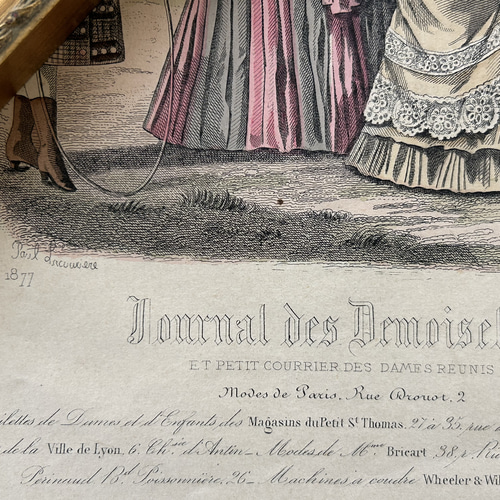 Paul Lacouriere
1877
Journal des Demoisel
ET PETIT COURRIER DES DAMES REUNIS
Modes de Paris. Rue Drouot, 2
ilettes de Dames et d'Enfants des Magasins du Petit St Thomas, 27 à 35, rue d
de la Ville de Lyon, 6, Chsée d'Antin _ Modes de Mme Bricart 38, r. Ri
Périneud Bd Poissonnière, 26 _ Machines à coudre Wheeler & Wil